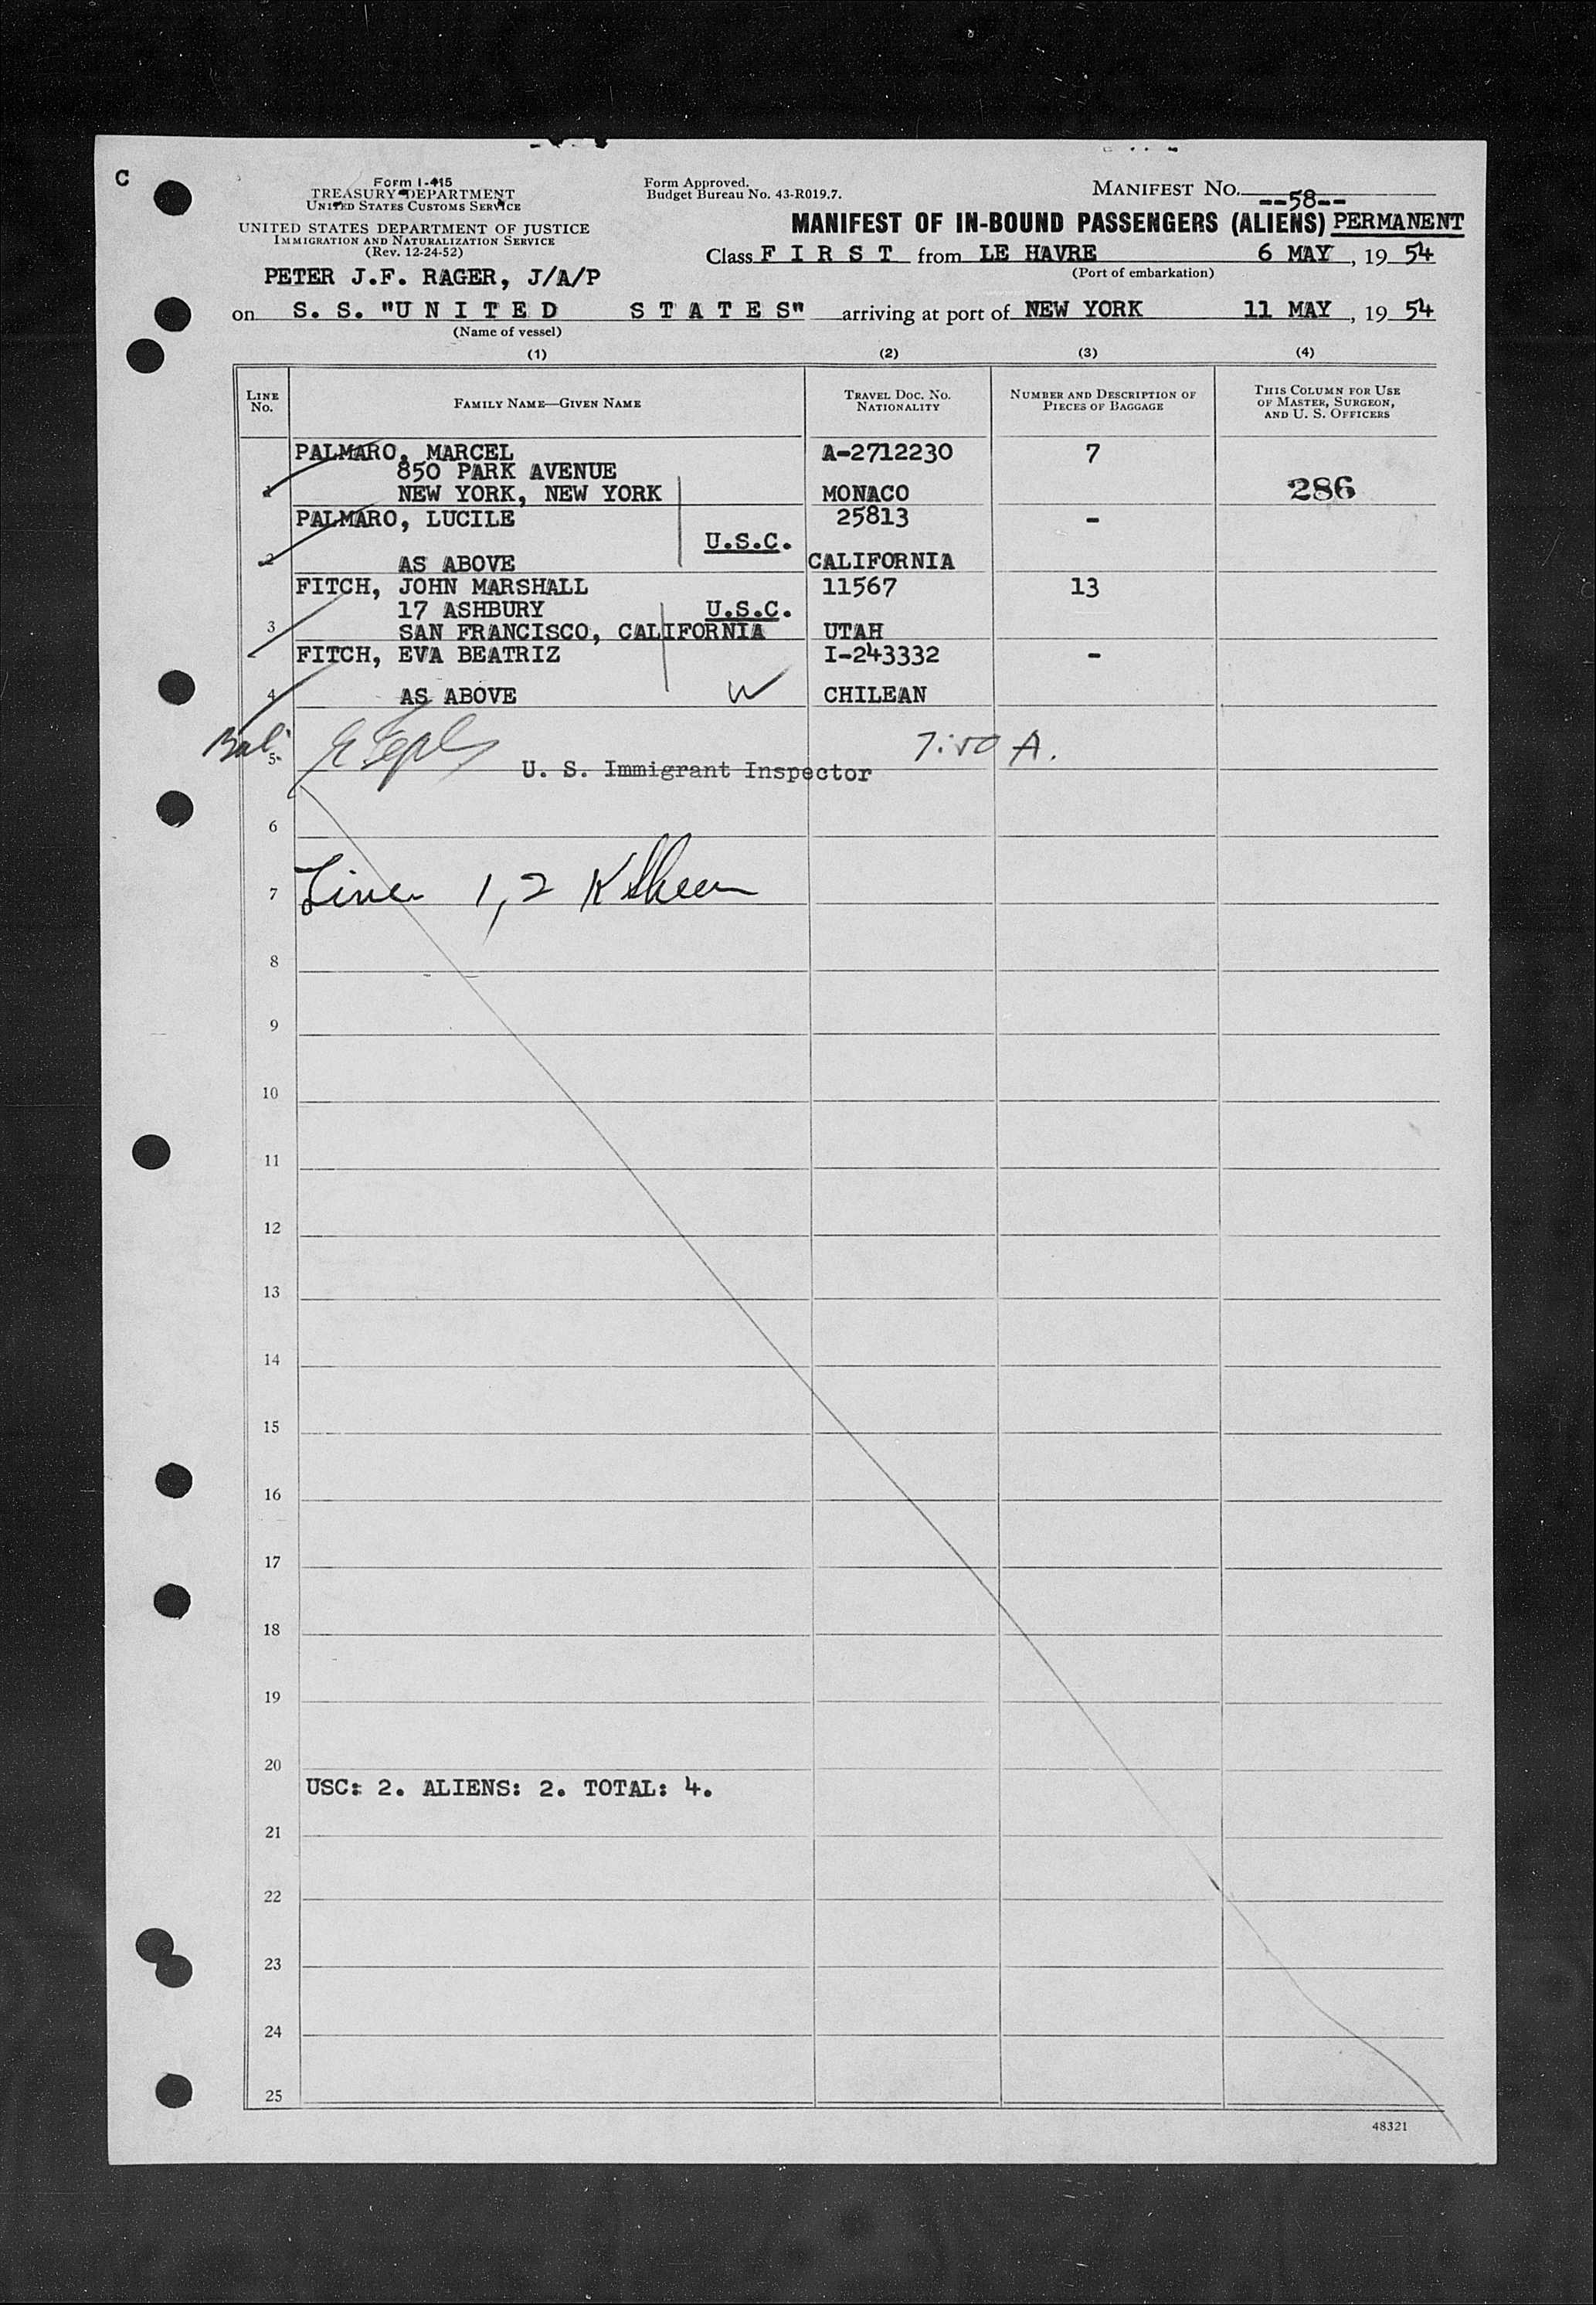 C
Form I-415
TREASURY DEPARTMENT
UNITED STATES CUSTOMS SERVICE
UNITED STATES DEPARTMENT OF JUSTICE
IMMIGRATION AND NATURALIZATION SERVICE
(Rev. 12-24-52)
Form Approved.
Budget Bureau No. 43-R019.7.
MANIFEST NO. --58--
MANIFEST OF IN-BOUND PASSENGERS (ALIENS) PERMANENT
Class F I R S T from LE HAVRE 6 MAY, 19 54
(Port of embarkation)
PETER J.F. RAGER, J/A/P
on S. S. "U N I T E D S T A T E S" arriving at port of NEW YORK 11 MAY, 19 54
(Name of vessel)
(1) (2) (3) (4)
LINE NO. FAMILY NAME—GIVEN NAME TRAVEL DOC. NO. NATIONALITY NUMBER AND DESCRIPTION OF PIECES OF BAGGAGE THIS COLUMN FOR USE OF MASTER, SURGEON, AND U. S. OFFICERS
PALMARO, MARCEL A-2712230 7
850 PARK AVENUE
1 NEW YORK, NEW YORK MONACO 286
PALMARO, LUCILE 25813 -
U.S.C.
2 AS ABOVE CALIFORNIA
FITCH, JOHN MARSHALL 11567 13
17 ASHBURY U.S.C.
3 SAN FRANCISCO, CALIFORNIA UTAH
FITCH, EVA BEATRIZ I-243332 -
4 AS ABOVE W CHILEAN
5 7:50 A.
U. S. Immigrant Inspector
6
7 Line 1, 2
8
9
10
11
12
13
14
15
16
17
18
19
20
USC: 2. ALIENS: 2. TOTAL: 4.
21
22
23
24
25
48321